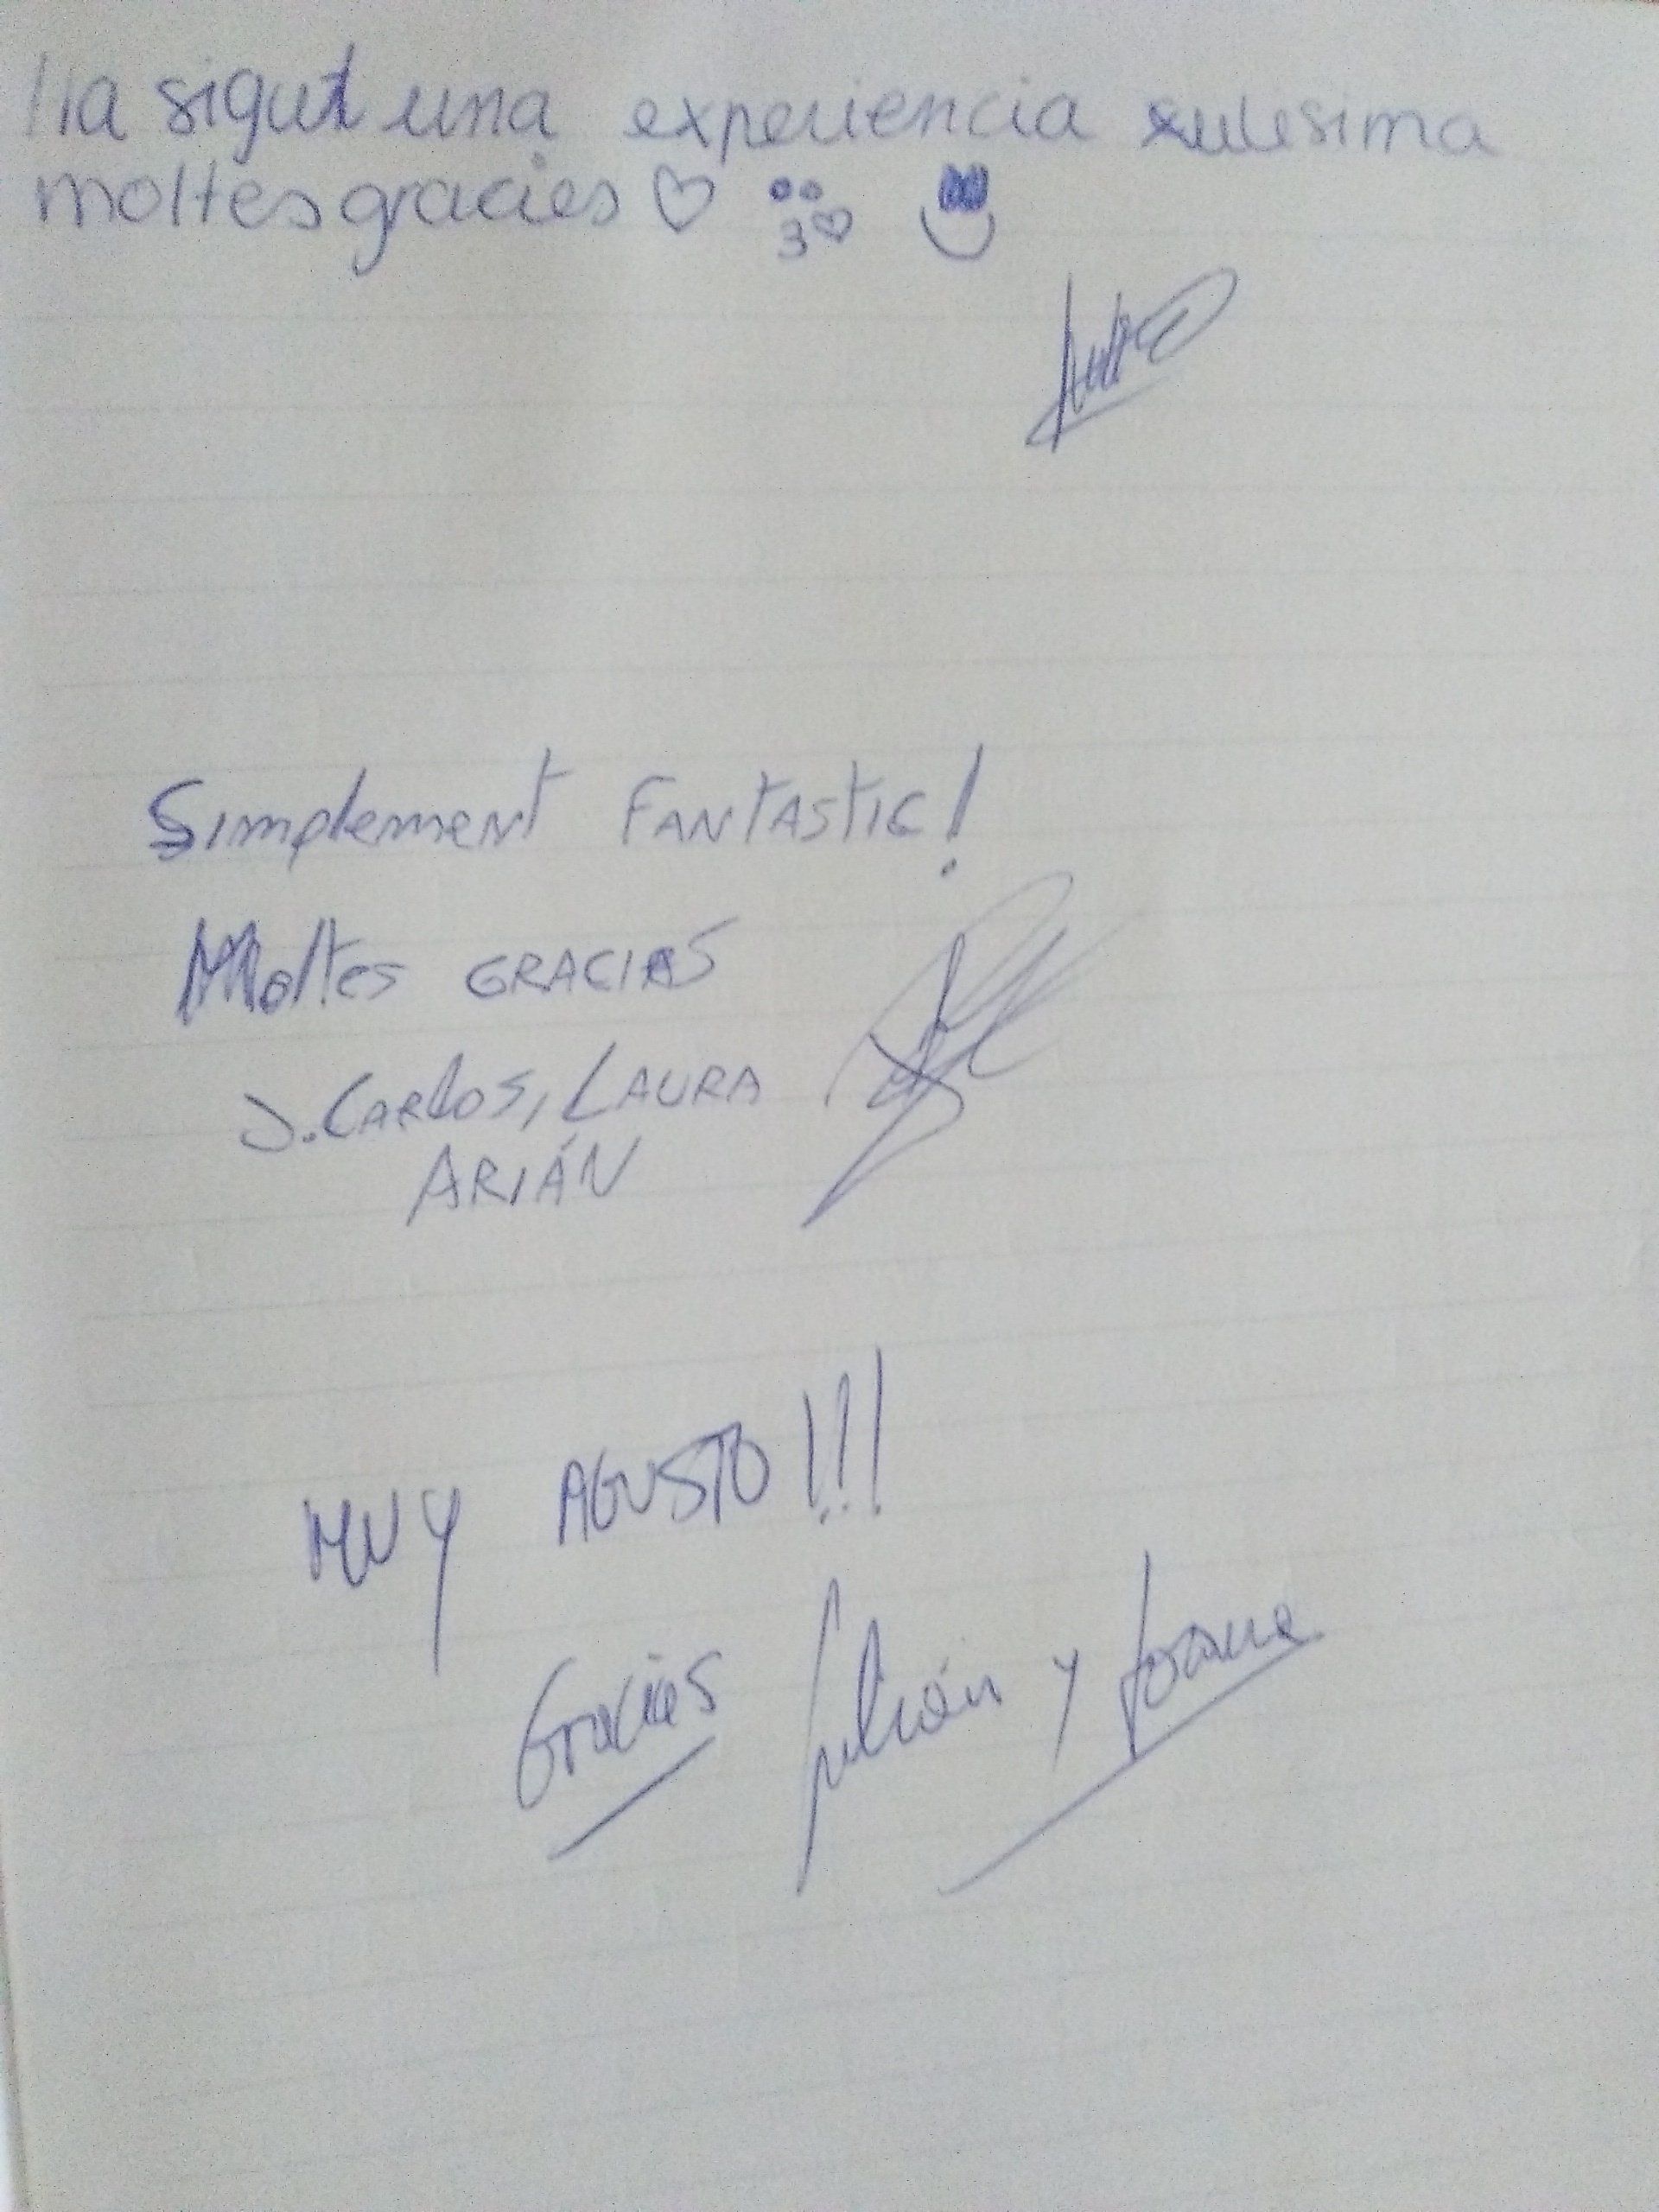 Ha sigut una experiencia xulisima
moltes gracies
Simplement FANTASTIC!
Moltes GRACIAS
J. CARLOS, LAURA
ARIÁN
MUY AGUSTO!!!
Gracies Julián y Joana